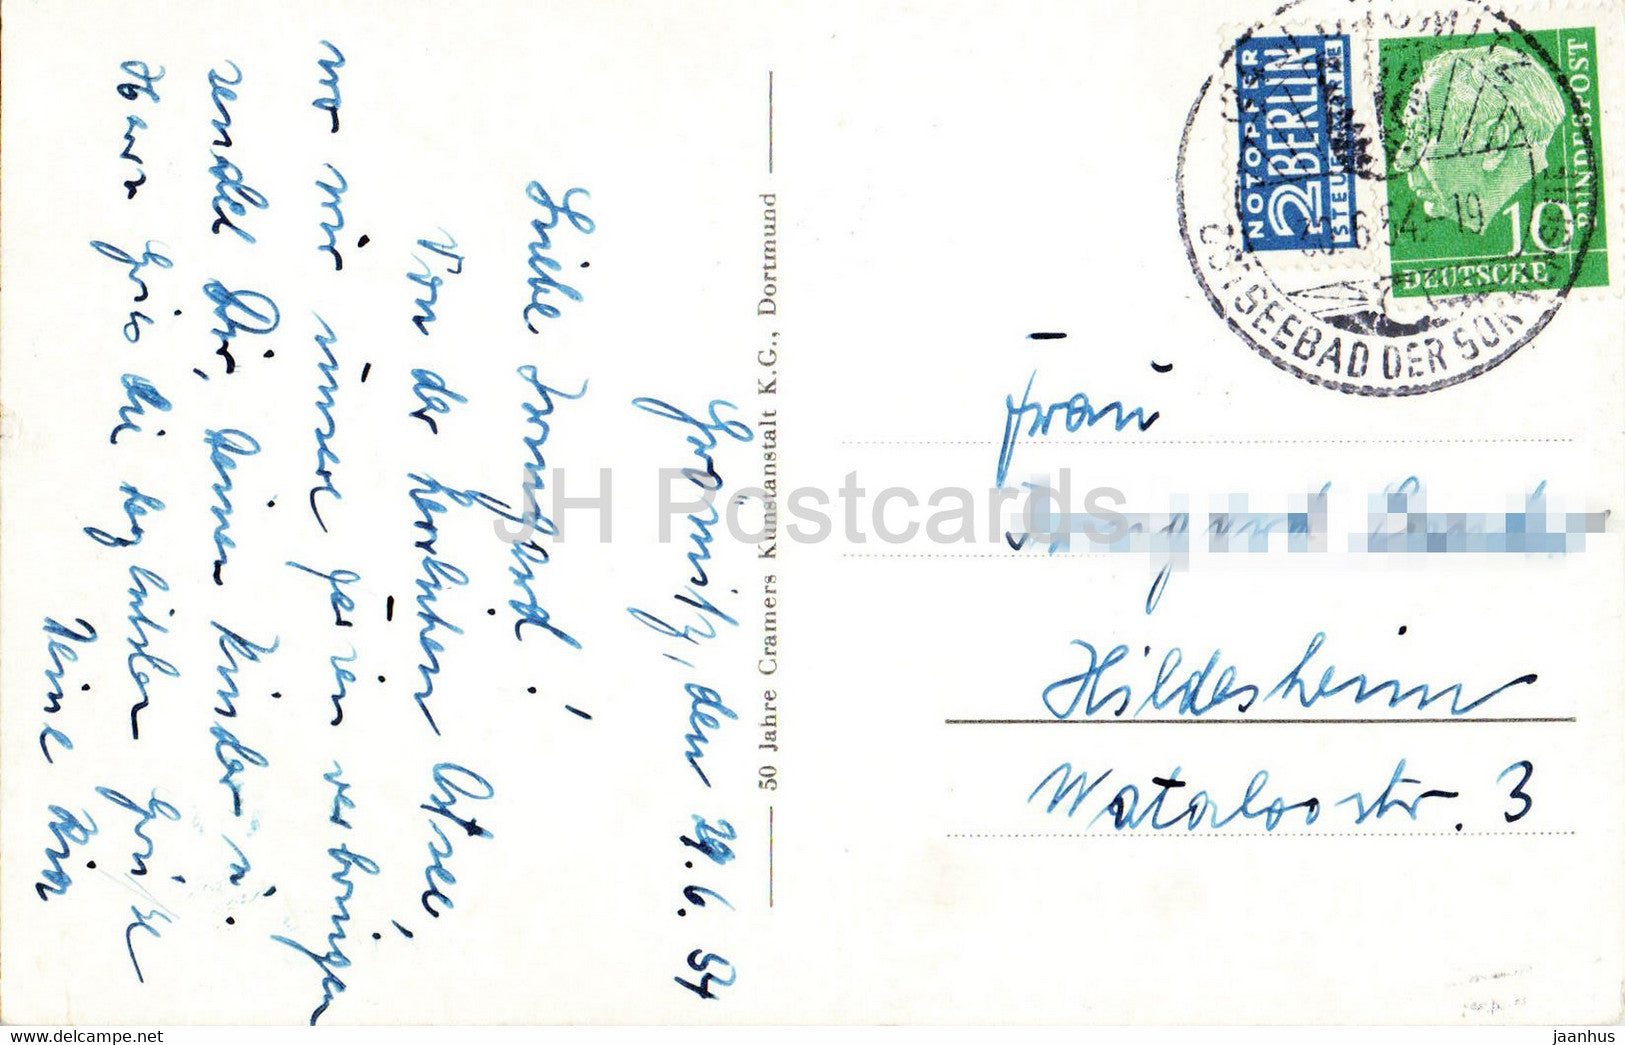 Grömitz, den 29.6.54
Liebe Irmgard!
Von der herrlichen Ostsee,
wo wir unsere Ferien verbringen
sendet Dir, deinen Kindern u.
Herrn die herzlichsten Grüße
Deine
50 Jahre Cramers Kunstanstalt K.G., Dortmund
NOTOPFER
2 BERLIN
STEUERMARKE
DEUTSCHE
BUNDESPOST
10
30.6.54.-19
OSTSEEBAD DER SONNENSEITE
Frau
Hildesheim
Waterloostr. 3
JH Postcards
jaanhus ©